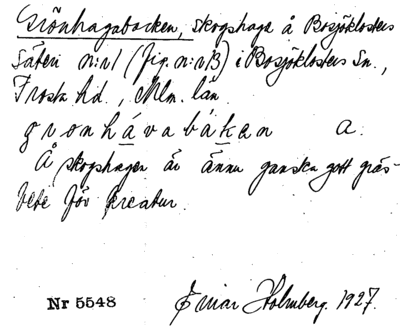 Grönhagabacken, skogshage å Bosjöklosters
säteri n:r 1 (fig. n:r B) i Bosjöklosters Sn.,
Frosta hd., Mlm. län.
grōnhávabákan a.
Å skogshagen är ännu ganska gott gräs-
bete för kreatur.
Nr 5548 Einar Holmberg. 1927.